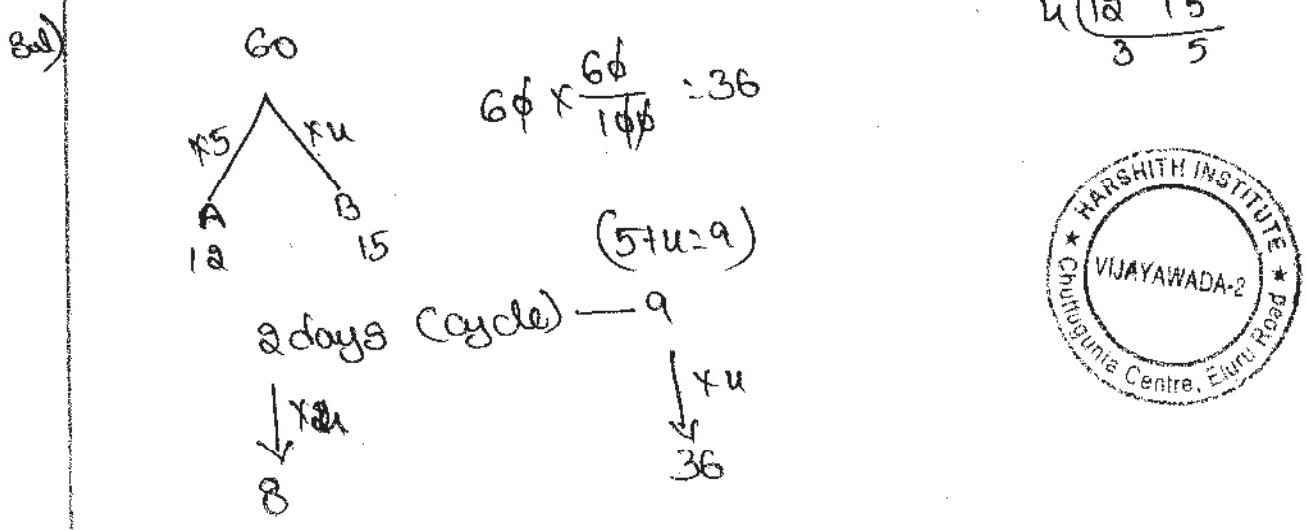 Sol)
60
×5 ×4
A B
12 15
60 × 60/100 = 36
4(12 15
3 5
(5+4=9)
2 days (cycle) — 9
×4 ×4
8 36
HARSHITH INSTITUTE
VIJAYAWADA-2
Chuttugunta Centre, Eluru Road